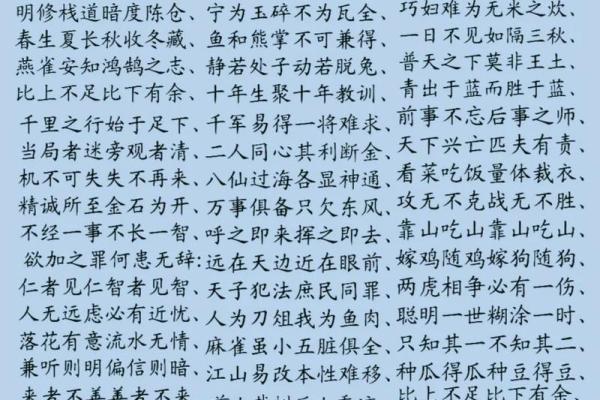 明修栈道暗度陈仓、
春生夏长秋收冬藏、
燕雀安知鸿鹄之志、
比上不足比下有余、
千里之行始于足下、
当局者迷旁观者清、
机不可失失不再来、
精诚所至金石为开、
不经一事不长一智、
欲加之罪何患无辞:
仁者见仁智者见智、
人无远虑必有近忧、
落花有意流水无情、
兼听则明偏信则暗、
来者不善善者不来、
宁为玉碎不为瓦全、
鱼和熊掌不可兼得、
静若处子动若脱兔、
十年生聚十年教训、
千军易得一将难求、
二人同心其利断金、
八仙过海各显神通、
万事俱备只欠东风、
呼之即来挥之即去、
远在天边近在眼前、
天子犯法庶民同罪、
人为刀俎我为鱼肉、
麻雀虽小五脏俱全、
江山易改本性难移、
巧妇难为无米之炊、
一日不见如隔三秋、
普天之下莫非王土、
青出于蓝而胜于蓝、
前事不忘后事之师、
天下兴亡匹夫有责、
看菜吃饭量体裁衣、
攻无不克战无不胜、
靠山吃山靠山吃山、
嫁鸡随鸡嫁狗随狗、
两虎相争必有一伤、
聪明一世糊涂一时、
只知其一不知其二、
种瓜得瓜种豆得豆、
比上不足比下有余、